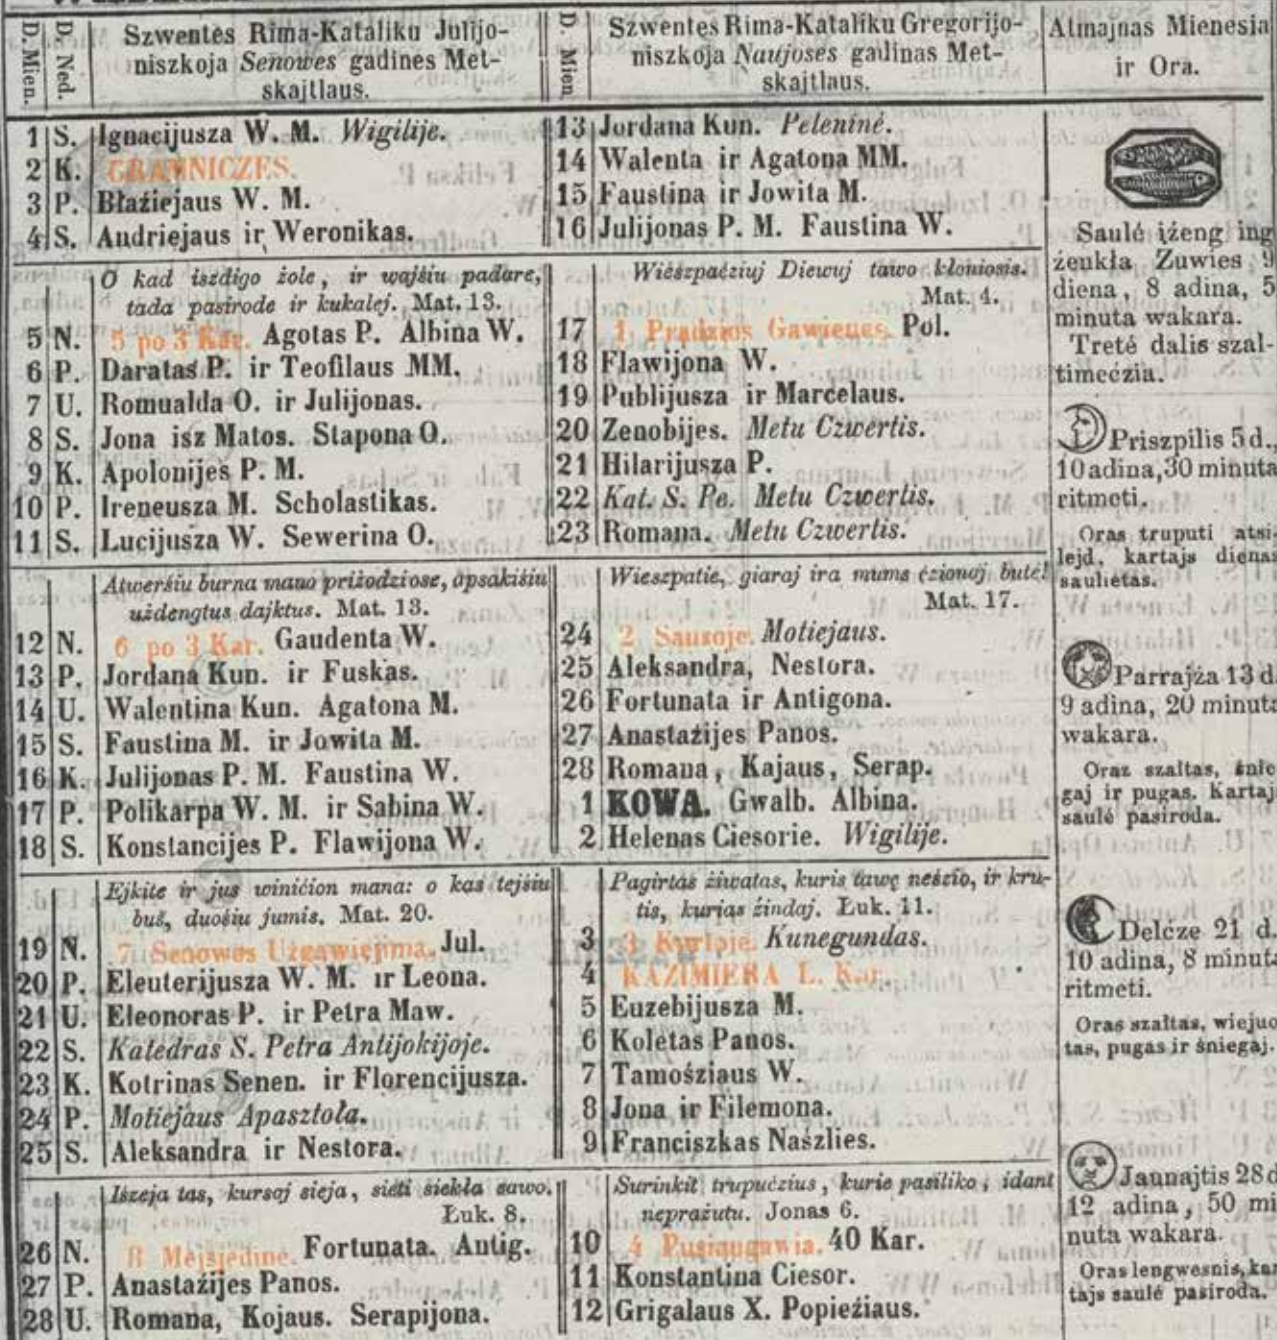 D. Mien.
D. Ned.
Szwentės Rima-Kataliku Julijo-
niszkoja Senowes gadinės Met-
skajtlaus.
1 S. Ignacijusza W. M. Wigilije.
2 K. GRAMNICZES.
3 P. Błaźiejaus W. M.
4 S. Andriejaus ir Weronikas.
O kad iszdigo żole, ir wajśiu padare,
tada pasirode ir kukalej. Mat. 13.
5 N. 5 po 3 Kar. Agotas P. Albina W.
6 P. Daratas P. ir Teofilaus MM.
7 U. Romualda O. ir Julijonas.
8 S. Jona isz Matos. Stapona O.
9 K. Apolonijes P. M.
10 P. Ireneusza M. Scholastikas.
11 S. Lucijusza W. Sewerina O.
Atwerśiu burna mano priżodziose, apsakiśiu
uźdengtus dajktus. Mat. 13.
12 N. 6 po 3 Kar. Gaudenta W.
13 P. Jordana Kun. ir Fuskas.
14 U. Walentina Kun. Agatona M.
15 S. Faustina M. ir Jowita M.
16 K. Julijonas P. M. Faustina W.
17 P. Polikarpa W. M. ir Sabina W.
18 S. Konstancijes P. Flawijona W.
Ejkite ir jus winićion mana: o kas tejsiu
buś, duośiu jumis. Mat. 20.
19 N. 7 Senowes Użgawięjima. Jul.
20 P. Eleuterijusza W. M. ir Leona.
21 U. Eleonoras P. ir Petra Maw.
22 S. Katedras S. Petra Antijokijoje.
23 K. Kotrinas Senen. ir Florencijusza.
24 P. Motiejaus Apasztoła.
25 S. Aleksandra ir Nestora.
Iszeja tas, kursaj sieja, sieti siekła sawo.
Łuk. 8.
26 N. 8 Mejsjedine. Fortunata. Antig.
27 P. Anastaźijes Panos.
28 U. Romana, Kojaus. Serapijona.
D. Mien.
Szwentęs Rima-Kataliku Gregorijo-
niszkoja Naujoses gadinas Met-
skajtlaus.
13 Jordana Kun. Peleninė.
14 Walenta ir Agatona MM.
15 Faustina ir Jowita M.
16 Julijonas P. M. Faustina W.
Wieszpaćziuj Diewuj tawo kłoniosis.
Mat. 4.
17 1 Pradzios Gawienes. Pol.
18 Flawijona W.
19 Publijusza ir Marcelaus.
20 Zenobijes. Metu Czwertis.
21 Hilarijusza P.
22 Kat. S. Pe. Metu Czwertis.
23 Romana. Metu Czwertis.
Wieszpatie, giaraj ira mums ćzionaj butė!
Mat. 17.
24 2 Sausoje. Motiejaus.
25 Aleksandra, Nestora.
26 Fortunata ir Antigona.
27 Anastaźijes Panos.
28 Romana, Kajaus, Serap.
1 KOWA. Gwalb. Albina.
2 Helenas Ciesorie. Wigilije.
Pagirtas źiwatas, kuris tawę neśzio, ir kru-
tis, kurias źindaj. Łuk. 11.
3 3 Kurloje. Kunegundas.
4 KAZIMIERA L. Kar.
5 Euzebijusza M.
6 Koletas Panos.
7 Tamośziaus W.
8 Jona ir Filemona.
9 Franciszkas Naszlies.
Surinkit trupućzius, kurie pasiliko, idant
neprażutu. Jonas 6.
10 4 Pusiaugawia. 40 Kar.
11 Konstantina Ciesor.
12 Grigalaus X. Popieźiaus.
Atmajnas Mienesia
ir Ora.
Saulė iżeng ing
źenkła Zuwies 9
diena, 8 adina, 5
minuta wakara.
Tretė dalis szal-
timećzia.
Priszpilis 5 d.,
10 adina, 30 minuta
ritmeti.
Oras truputi atsi-
lejd, kartajs dienas
saulietas.
Parrajża 13 d.
9 adina, 20 minuta
wakara.
Oraz szaltas, śnie
gaj ir pugas. Kartajs
saulė pasiroda.
Delćze 21 d.
10 adina, 8 minuta
ritmeti.
Oras szaltas, wiejuo
tas, pugas ir śniegaj.
Jaunajtis 28 d
12 adina, 50 mi
nuta wakara.
Oras lengwesnis, kar
tajs saulė pasiroda.